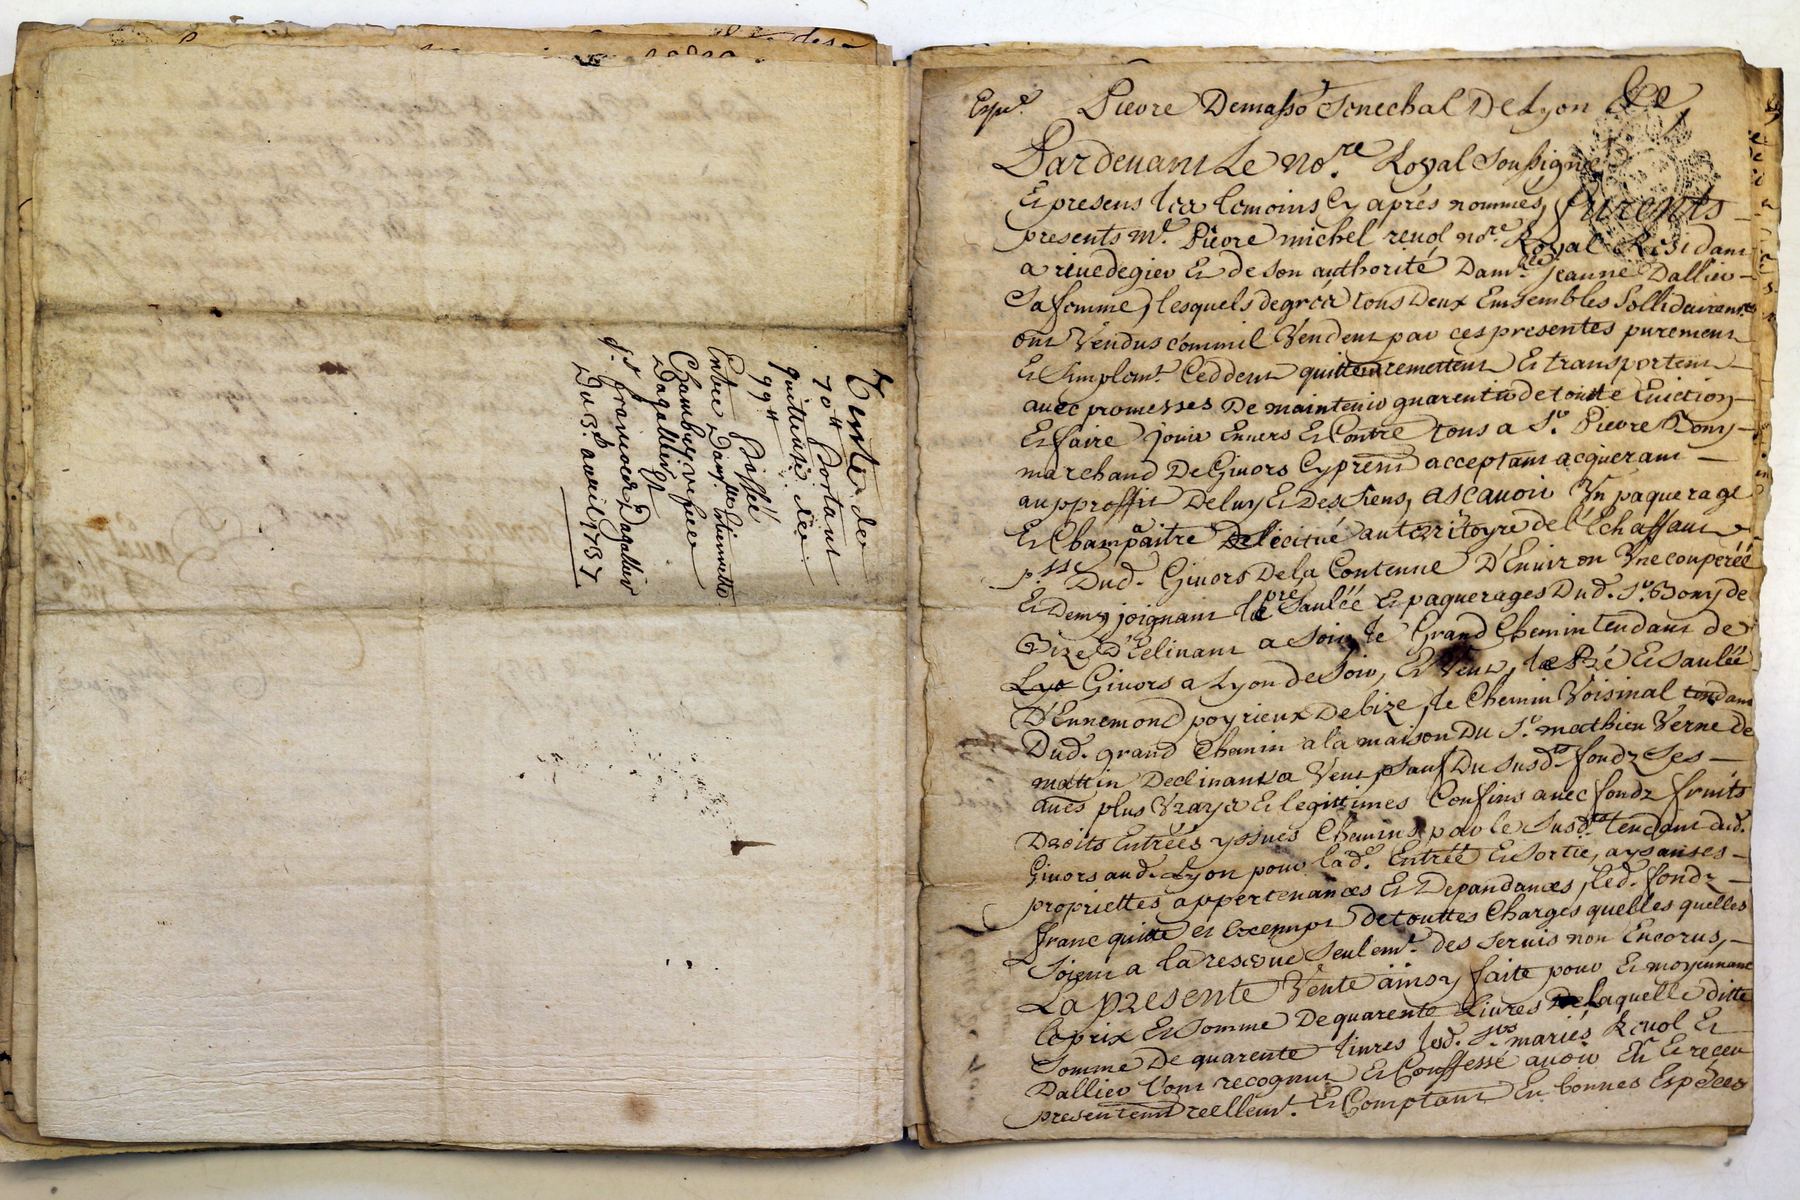 Vente de
70ᵗᵗ Portant
quittence de
99ᵗᵗ
Passée
Entre Damˡˡᵉ Etiennette
Chambry vefve
Dagallier Et
sʳ francois Dagallier
Du 3ᵉ avril 1737
Expéᵉ
Pierre Demasso Senechal De Lyon
Pardevant Le noʳᵉ Royal Soussigné
Et presens les temoins Cy aprés nommés, furents
presents mᵉ. Pierre michel renol noʳᵉ Royal Residant
a rivedegier Et de son authorité Damˡˡᵉ Jeanne Dallier
Sa femme, lesquels de gréz tous Deux Ensembles Sollidairemᵗ
ont Vendus comm'il Vendent par ces presentes purement
Et Simplemᵗ. Ceddent quittent remettent Et transportent
avec promesses De maintenir guarentir de toutte Eviction
Et faire jouir Envers Et Contre tous a Sʳ. Pierre Bony
marchand De Givors Cy présent acceptant acquerant
au proffit De luy Et Des Siens, ascavoir Un paquerage
Et Champaitre scitué au territoyre de l'Echaffaut
pˢˢᵉ Dud. Givors De la Contenue D'Environ Une couperéé
Et Demy joignant le pré Sauléé Et paquerages Dud. Sʳ Bony de
Bize D'Eclinant a Soir, le Grand Chemin tendant de
Lyo Givors a Lyon de Soir, Et Vent, le Pré Et Sauléé
D'Ennemond poyrieux De bize, le Chemin Voisinal tendant
Dud. grand Chemin a la maison Du Sʳ. mathieu Verne de
mattin Declinant a Vent, sauf Du susdᵗ fondz Ses
autres plus Vrays Et legittimes Confins avec fondz fruits
Droits Entrées yssues Chemins, par le Susdᵗ tendant dud.
Givors aud. Lyon pour lad. Entréé Et Sortie, aysances
propriettes appertenances Et Depandances, led. fondz
franc quitte et Exempt de touttes Charges quelles quelles
Soient a la reserve Seulemᵗ. des Servis non Encorus,
La presente Vente ainsy faite pour Et moyennant
le prix Et Somme De quarente Livres De laquelle ditte
Somme De quarente livres lesd. Sʳˢ mariés Renol Et
Dallier l'ont recognut Et Confessé avoir Eu Et receu
presentemᵗ reellemᵗ. Et Comptant En bonnes Espéces